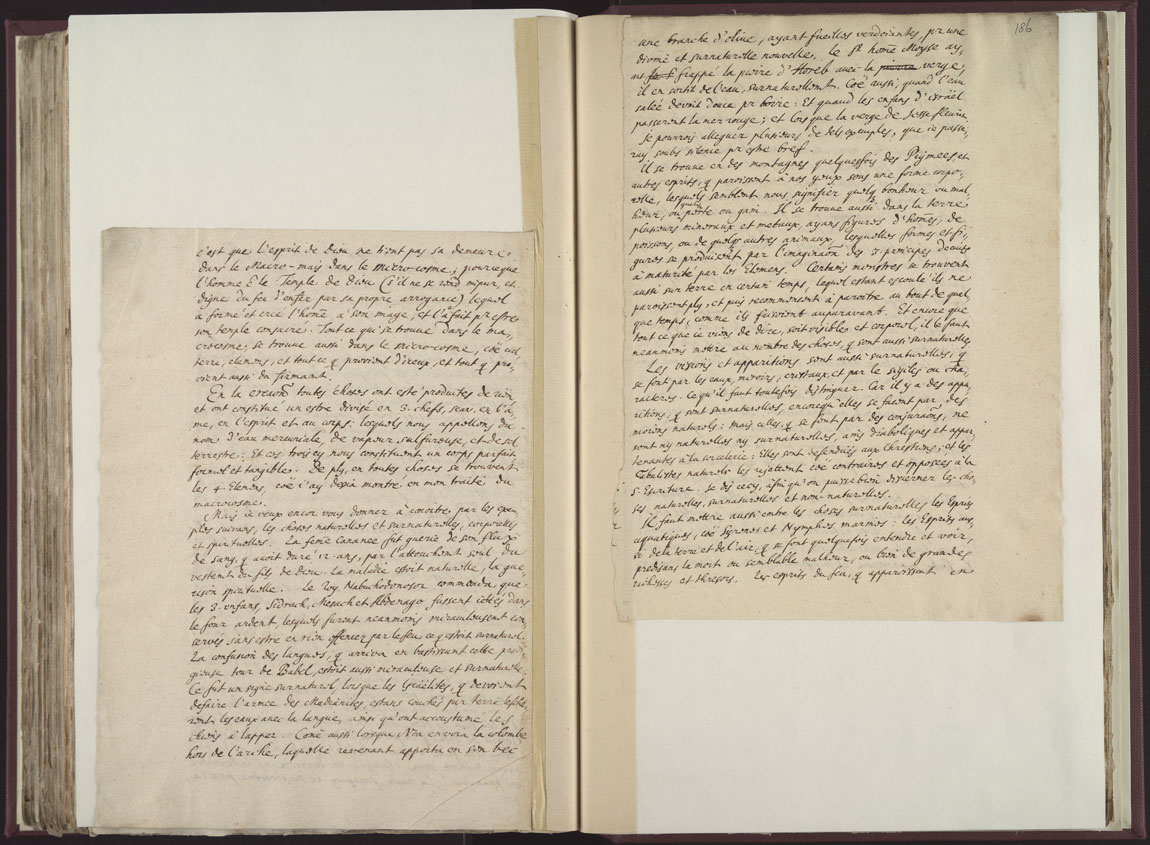 c'est que l'esprit de Dieu ne tient pas sa demeure
dans le Macro- mais dans le microcosme; pource que
l'homme E le Temple de Dieu (s'il ne se rend impur, et
digne du feu d'enfer par sa propre arrogance) lequel
a formé et créé l'home à son image, et l'a fait pr estre
son temple consacré. Tout ce qui se trouve dans le ma,
crocosme, se trouve aussi dans le microcosme, coē ciel
terre, elemens, et tout ce q provient d'iceux, et tout q pro,
vient aussi du firmament.
En la creaōn toutes choses ont esté produites de rien
et ont constitué un estre divisé en 3. chefs, scav. en l'a,
me, en l'esprit et au corps: lesquels nous appellons du
nom d'eau mercuriale, de vapeur sulfureuse, et de sel
terrestre: Et ces trois cy nous constituent un corps parfait
formel et tangible. De ply, en toutes choses se trouvent
les 4. Elemens, coē i'ay desia montré en mon traité du
macrocosme.
Mais ie veux encor vous donner à conoitre par les exem
ples suivans, les choses naturelles et surnaturelles, corporelles
et spirituelles. La feme Cananee fut guerie de son flux
de sang, q avoit duré 12. ans, par l'attouchemt seul du
vestemt du fils de Dieu. La maladie estoit naturelle, la gue,
rison spirituelle. Le Roy Nabuchodonosor commenda, que
les 3. enfans, Sidrach, Mesach et Abdenago fussent iettés dans
le four ardent, lesquels furent neanmoins miraculeusemt con
servés sans estre en rien offencez par le feu ce q estoit surnaturel.
La confusion des langues, q arriva en bastissant cette prodi
gieuse tour de Babel, estoit aussi miraculeuse et surnaturelle
Ce fut un signe surnaturel, lorsque les Israëlites, q devoient
defaire l'armee des Madianites, estans couchés par terre leche
rent les eaux avec la langue, ainsi qu'ont accoustumé les
chiens à lapper. Come aussi lorsque Noa envoia la colombe
hors de l'arche, laquelle revenant apporta en son bec
186
une branche d'olive, ayant fueilles verdoiantes, pr une
chose et surnaturelle nouvelle. le St home Moyse ay,
ant frappé la pierre d'Horeb avec la verge,
il en sortit de l'eau, surnaturellemt. Coē aussi, quand l'eau
salée devint douce pr boire: Et quand les enfans d'israël
passerent la mer rouge; et lors que la verge de Jesse fleurie.
Je pourrois alleguer plusieurs de tels exemples, que ie passe,
ray soubs silence pr estre bref.
Il se trouve en des montagnes quelquesfois des Pigmees, et
autres esprits, q paroissent à nos yeux sous une forme corpo,
relle, lesquels semblent nous signifier quelq bonheur ou mal,
heur, ou quelq perte ou gain. Il se trouve aussi dans la terre
plusieurs mineraux et metaux, ayans figures d'homes, de
poissons, ou de quelqs autres animaux, lesquelles formes et fi,
gures se produisent par l'imaginaōn des 3. principes, deduits
à maturité par les Elemens. Certains monstres se trouvent
aussi sur terre en certain temps, lequel estant escoulé ils ne
paroissent ply, et puis recommencent à paroitre au bout de quel,
que temps, comme ils faisoient auparavant. Et encore que
tout ce que ie viens de dire, soit visible et corporel, il le faut
neanmoins mettre au nombre des choses, q sont aussi surnaturelles.
Les visions et apparitions sont aussi surnaturelles, q
se font par les eaux, miroirs, cristaux, et par le sigiles ou cha,
racteres. Ce qu'il faut toutefois distinguer. Car il y a des appa,
ritions, q sont surnaturelles, encore qu'elles se facent par des
moiens naturels: mais celles, q se font par des conjuraōns, ne
sont ny naturelles ny surnaturelles, ains diaboliques et appar,
tenantes à la sorcelerie: Elles sont defendues aux Chrestiens, et les
Cabalistes naturels les rejettent coē contraires et opposees à la
S. Escriture. Je dis cecy, afin qu'on puisse bien discerner les cho,
ses naturelles, surnaturelles et non-naturelles.
Il faut mettre aussi entre les choses surnaturelles les Esprits
aquatiques, coē Syrenes et Nymphes marines: les Esprits aus,
si de la terre et de l'air, q se font quelquefois entendre et voir,
predisans la mort ou semblable malheur, ou bien de grandes
richesses et thresors. Les esprits du feu, q apparoissent en